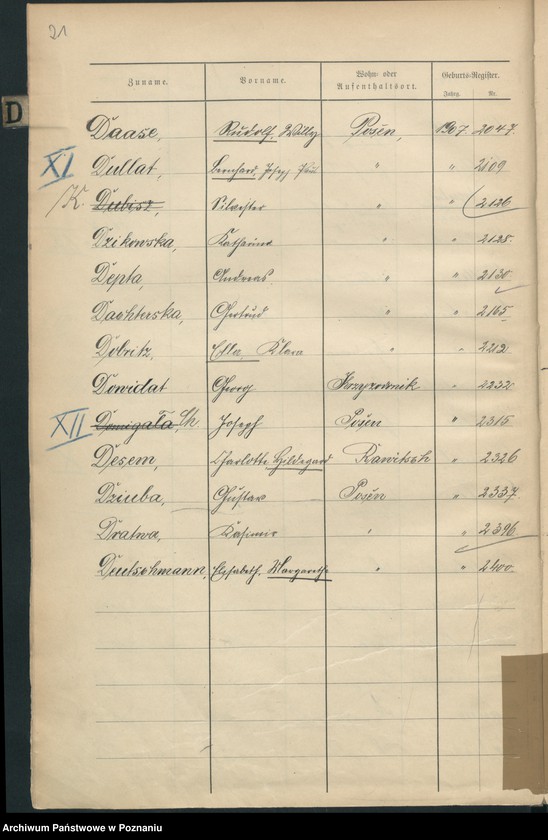 21
Zuname. Vorname. Wohn- oder Aufenthaltsort. Geburts-Register.
Jahrg. Nr.
D
Daase, Rudolf, Willy Posen, 1907. 2047.
XI Dullat, Bernhard, Josef, Paul " " 2109
K. Dubisz, Silvester " " 2126
Dzikowska, Katharina " " 2128.
Depta, Andreas " " 2130
Dachterska, Gertrud " " 2165
Dobritz, Klara " " 2212
Dowidat Georg " 2232
XII Domigała, Joseph Posen " 2315
Desem, Charlotte Hildegard Rawitsch " 2326
Dziuba, Gustav Posen " 2337.
Dratwa, Kasimir " " 2396
Deutschmann, Elisabeth, Margarethe " " 2400.
Archiwum Państwowe w Poznaniu